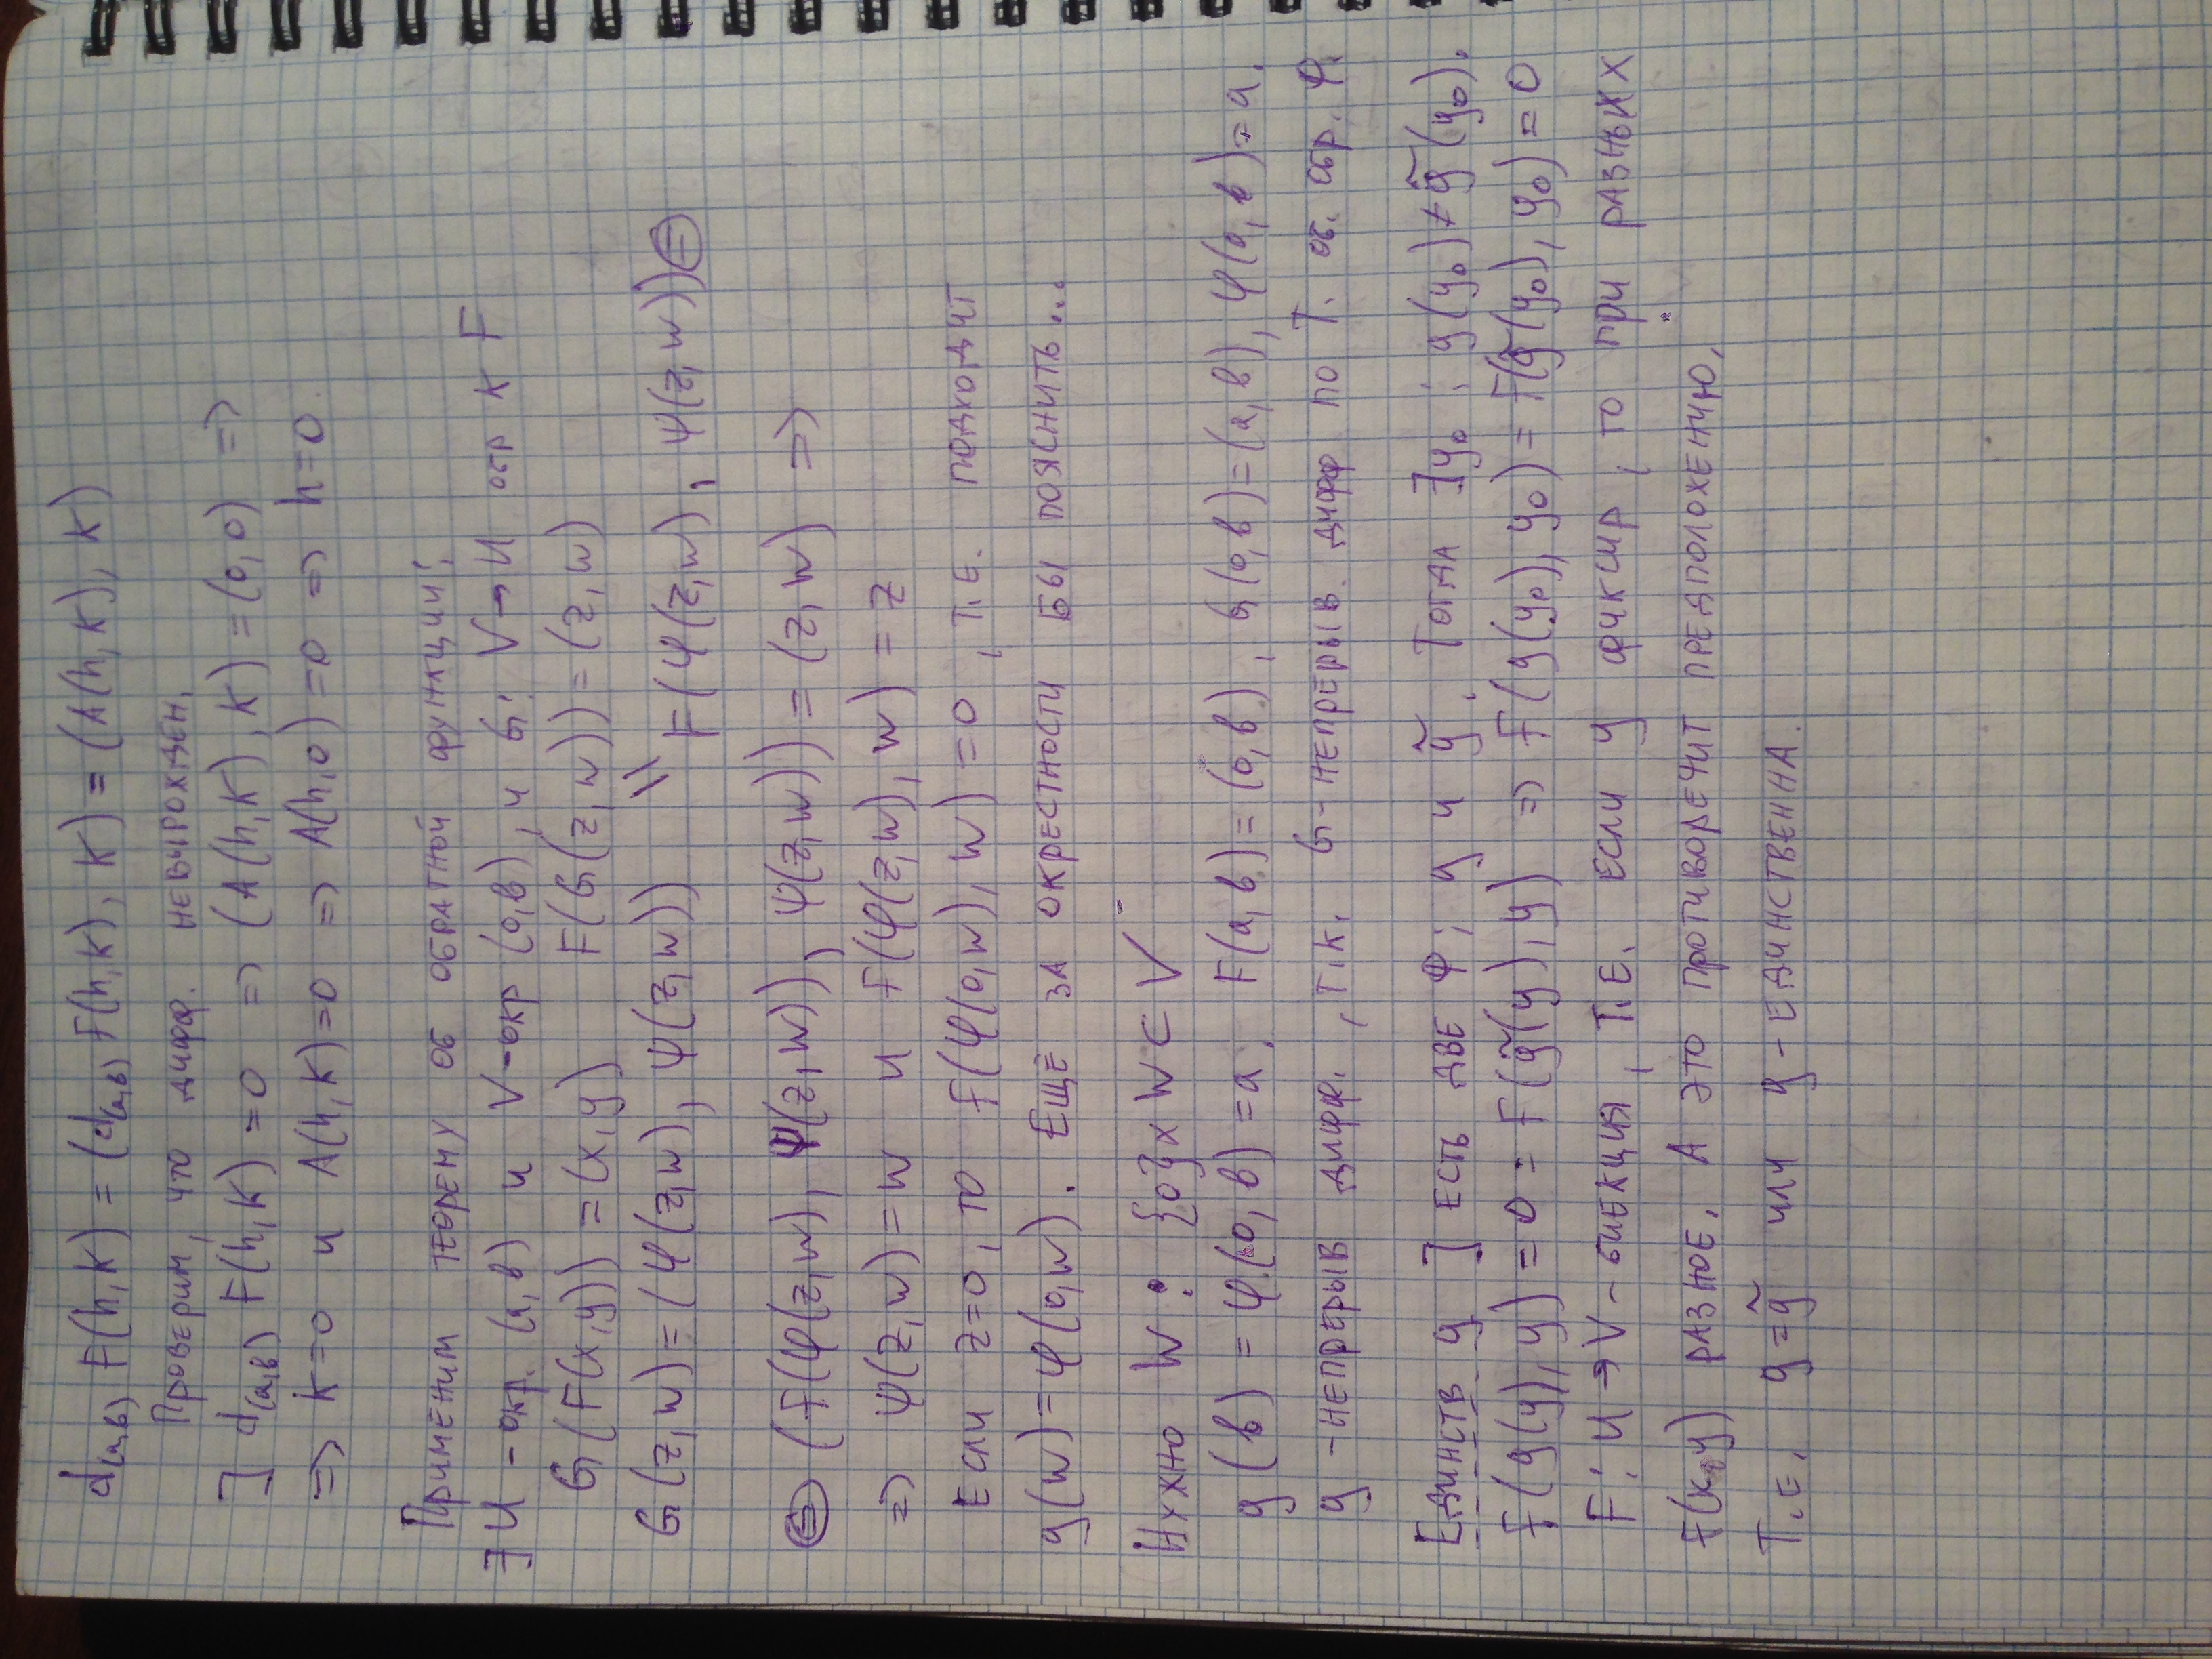 d(a,b) F(h,k) = (d(a,b) f(h,k), k) = (A(h,k), k)
Проверим, что дифф. невырожден.
] d(a,b) F(h,k) = 0 => (A(h,k), k) = (0,0) =>
=> k=0 и A(h,k)=0 => A(h,0)=0 => h=0.
Применим теорему об обратной функции:
∃ U - окр. (a,b) и V-окр (0,b), и G: V→U обр к F
G(F(x,y)) = (x,y) F(G(z,w)) = (z,w)
G(z,w) = (φ(z,w), ψ(z,w)) \\ F(φ(z,w), ψ(z,w)) ⊜
⊜ (f(φ(z,w), ψ(z,w)), ψ(z,w)) = (z,w) =>
=> ψ(z,w) = w и f(φ(z,w), w) = z
Если z=0, то f(φ(0,w), w) = 0, т.е. подходит
g(w) = φ(0,w). Ещё за окрестности бы пояснить...
Нужно W : {0}×W ⊂ V
g(b) = φ(0,b) = a. F(a,b) = (0,b), G(0,b) = (a,b), φ(0,b) = a.
g - непрерыв дифф., т.к. G - непрерыв. дифф по Т. об. обр. ф.
Единств g ] есть две ф: g и g̃. Тогда ∃y₀ : g(y₀) ≠ g̃(y₀).
f(g(y), y) = 0 = f(g̃(y), y) => f(g(y₀), y₀) = f(g̃(y₀), y₀) = 0
F: U → V - биекция, т.е. если y фиксир, то при разных x
f(x,y) разное. А это противоречит предположению,
т.е. g = g̃ или g - единственна.